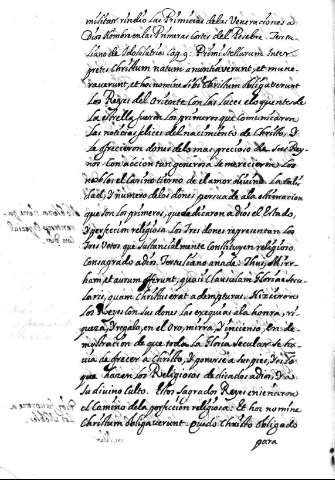 militar rindio las Primicias de las Veneraciones a
Dios Hombre en las Primeras Cortes del Pesebre. Tertu-
liano de Idololatria Cap. 9. Primi Stellarum Inter-
pretes Christum natum anuntiaverunt, et mune-
raverunt, et hoc nomine sibi Christum obligaverunt
Los Reyes del Oriente con las luces eloquentes de
la estrella, fueron los primeros que comunicaron
las noticias felices del nacimiento de Christo, y
le ofrecieron dones de lo mas precioso de sus Rey-
nos. Con accion tan generosa se merecieron los
nobles el Cariño tierno de el amor divino. La cali-
dad, y numero de los dones persuade a la estimacion
que son los primeros, que dedicaron a dios el estado,
y perfeccion religiosa. Los tres dones representan los
tres Votos que substancialmente Constituyen religioso
Consagrado a dios. Tertuliano añade: Thus, Mirr-
ham, et aurum offerunt, quasi Clausulam Gloriae Secu-
laris, quam Christus erat adempturus. Hizieron
los Reyes con sus dones las exequias a la honra, ri-
queza, y regalo, en el Oro, mirra, y incienso, en de-
mostracion de que toda la Gloria Secular se ha-
via de ofrecer a Christo, y ponerse a sus pies,
que hazen los Religiosos dedicados a dios, y a
su divino Culto. Estos sagrados Reyes enseñaron
el Camino de la perfeccion religiosa: Et hoc nomine
Christum obligaverunt. Quedo Christo obligado
para